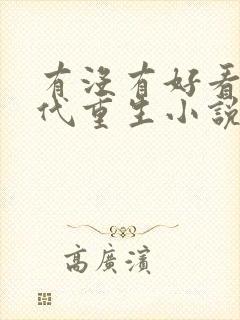 有没有好看
代重生小說
高廣濱